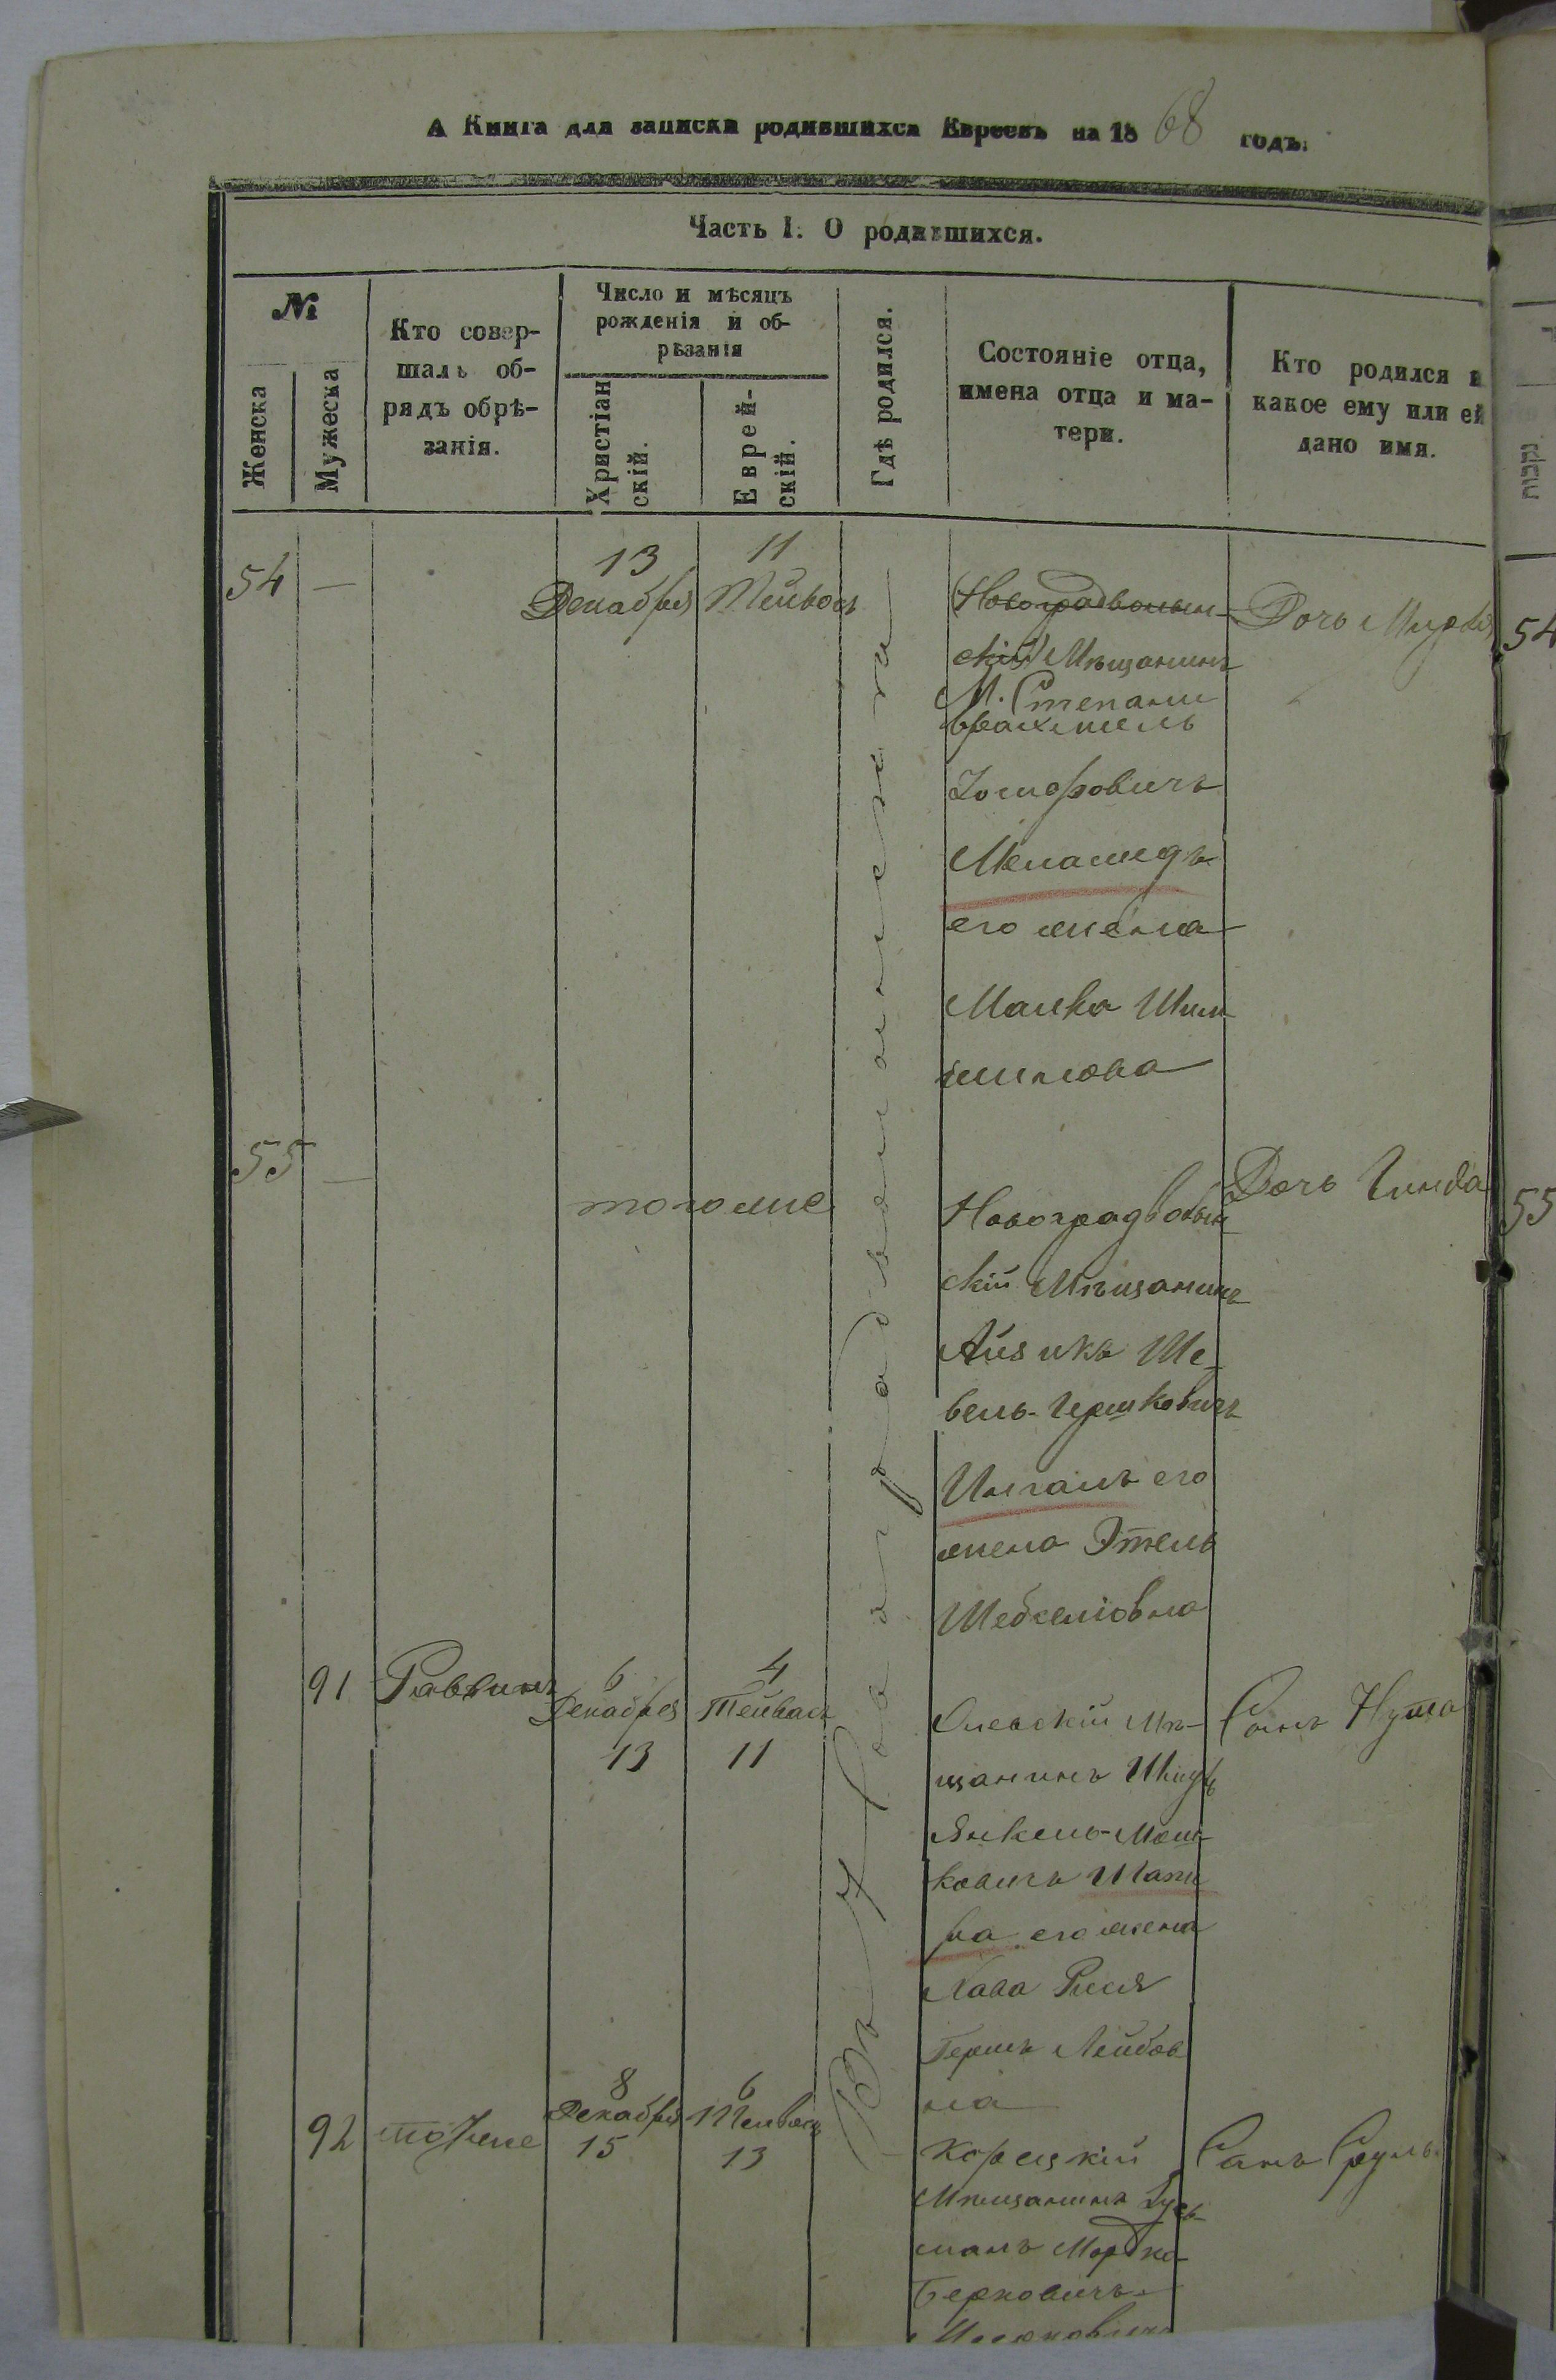 А Книга для записки родившихся Евреевъ на 1868 годъ.
Часть I. О родившихся.
№
Женска
Мужеска
Кто совер-
шалъ об-
рядъ обрѣ-
занія.
Число и мѣсяцъ
рожденія и об-
рѣзанія
Христіан
скій.
Еврей-
скій.
Гдѣ родился.
Состояніе отца,
имена отца и ма-
тери.
Кто родился и
какое ему или ей
дано имя.
נקבות
Въ г.
54
—
13
Декабря
11
Тейвесъ
Новоградволын-
скій Мѣщанинъ
М. Степани
Иосифовичъ
Меламедъ
его жена
Малка Шим
шинова
Дочь
54
55
—
тогоже
Новоградволын
скій Мѣщанинъ
Айзикъ Ше-
вель-Гершковичъ
его
жена Этель
Дочь Гинда
55
91
Раввинъ
6
Декабря
13
4
Тейвесъ
11
Олевскій Мѣ-
щанинъ
Янкель-Мош-
ковичъ Шапи
ра его жена
Хава Рися
Гершъ Лейбов
на
Сынъ Нута
92
тотже
8
Декабря
15
6
Тейвесъ
13
Корецкій
Мѣщанинъ Зусь
манъ Мордко-
Берковичъ
Сынъ Сруль